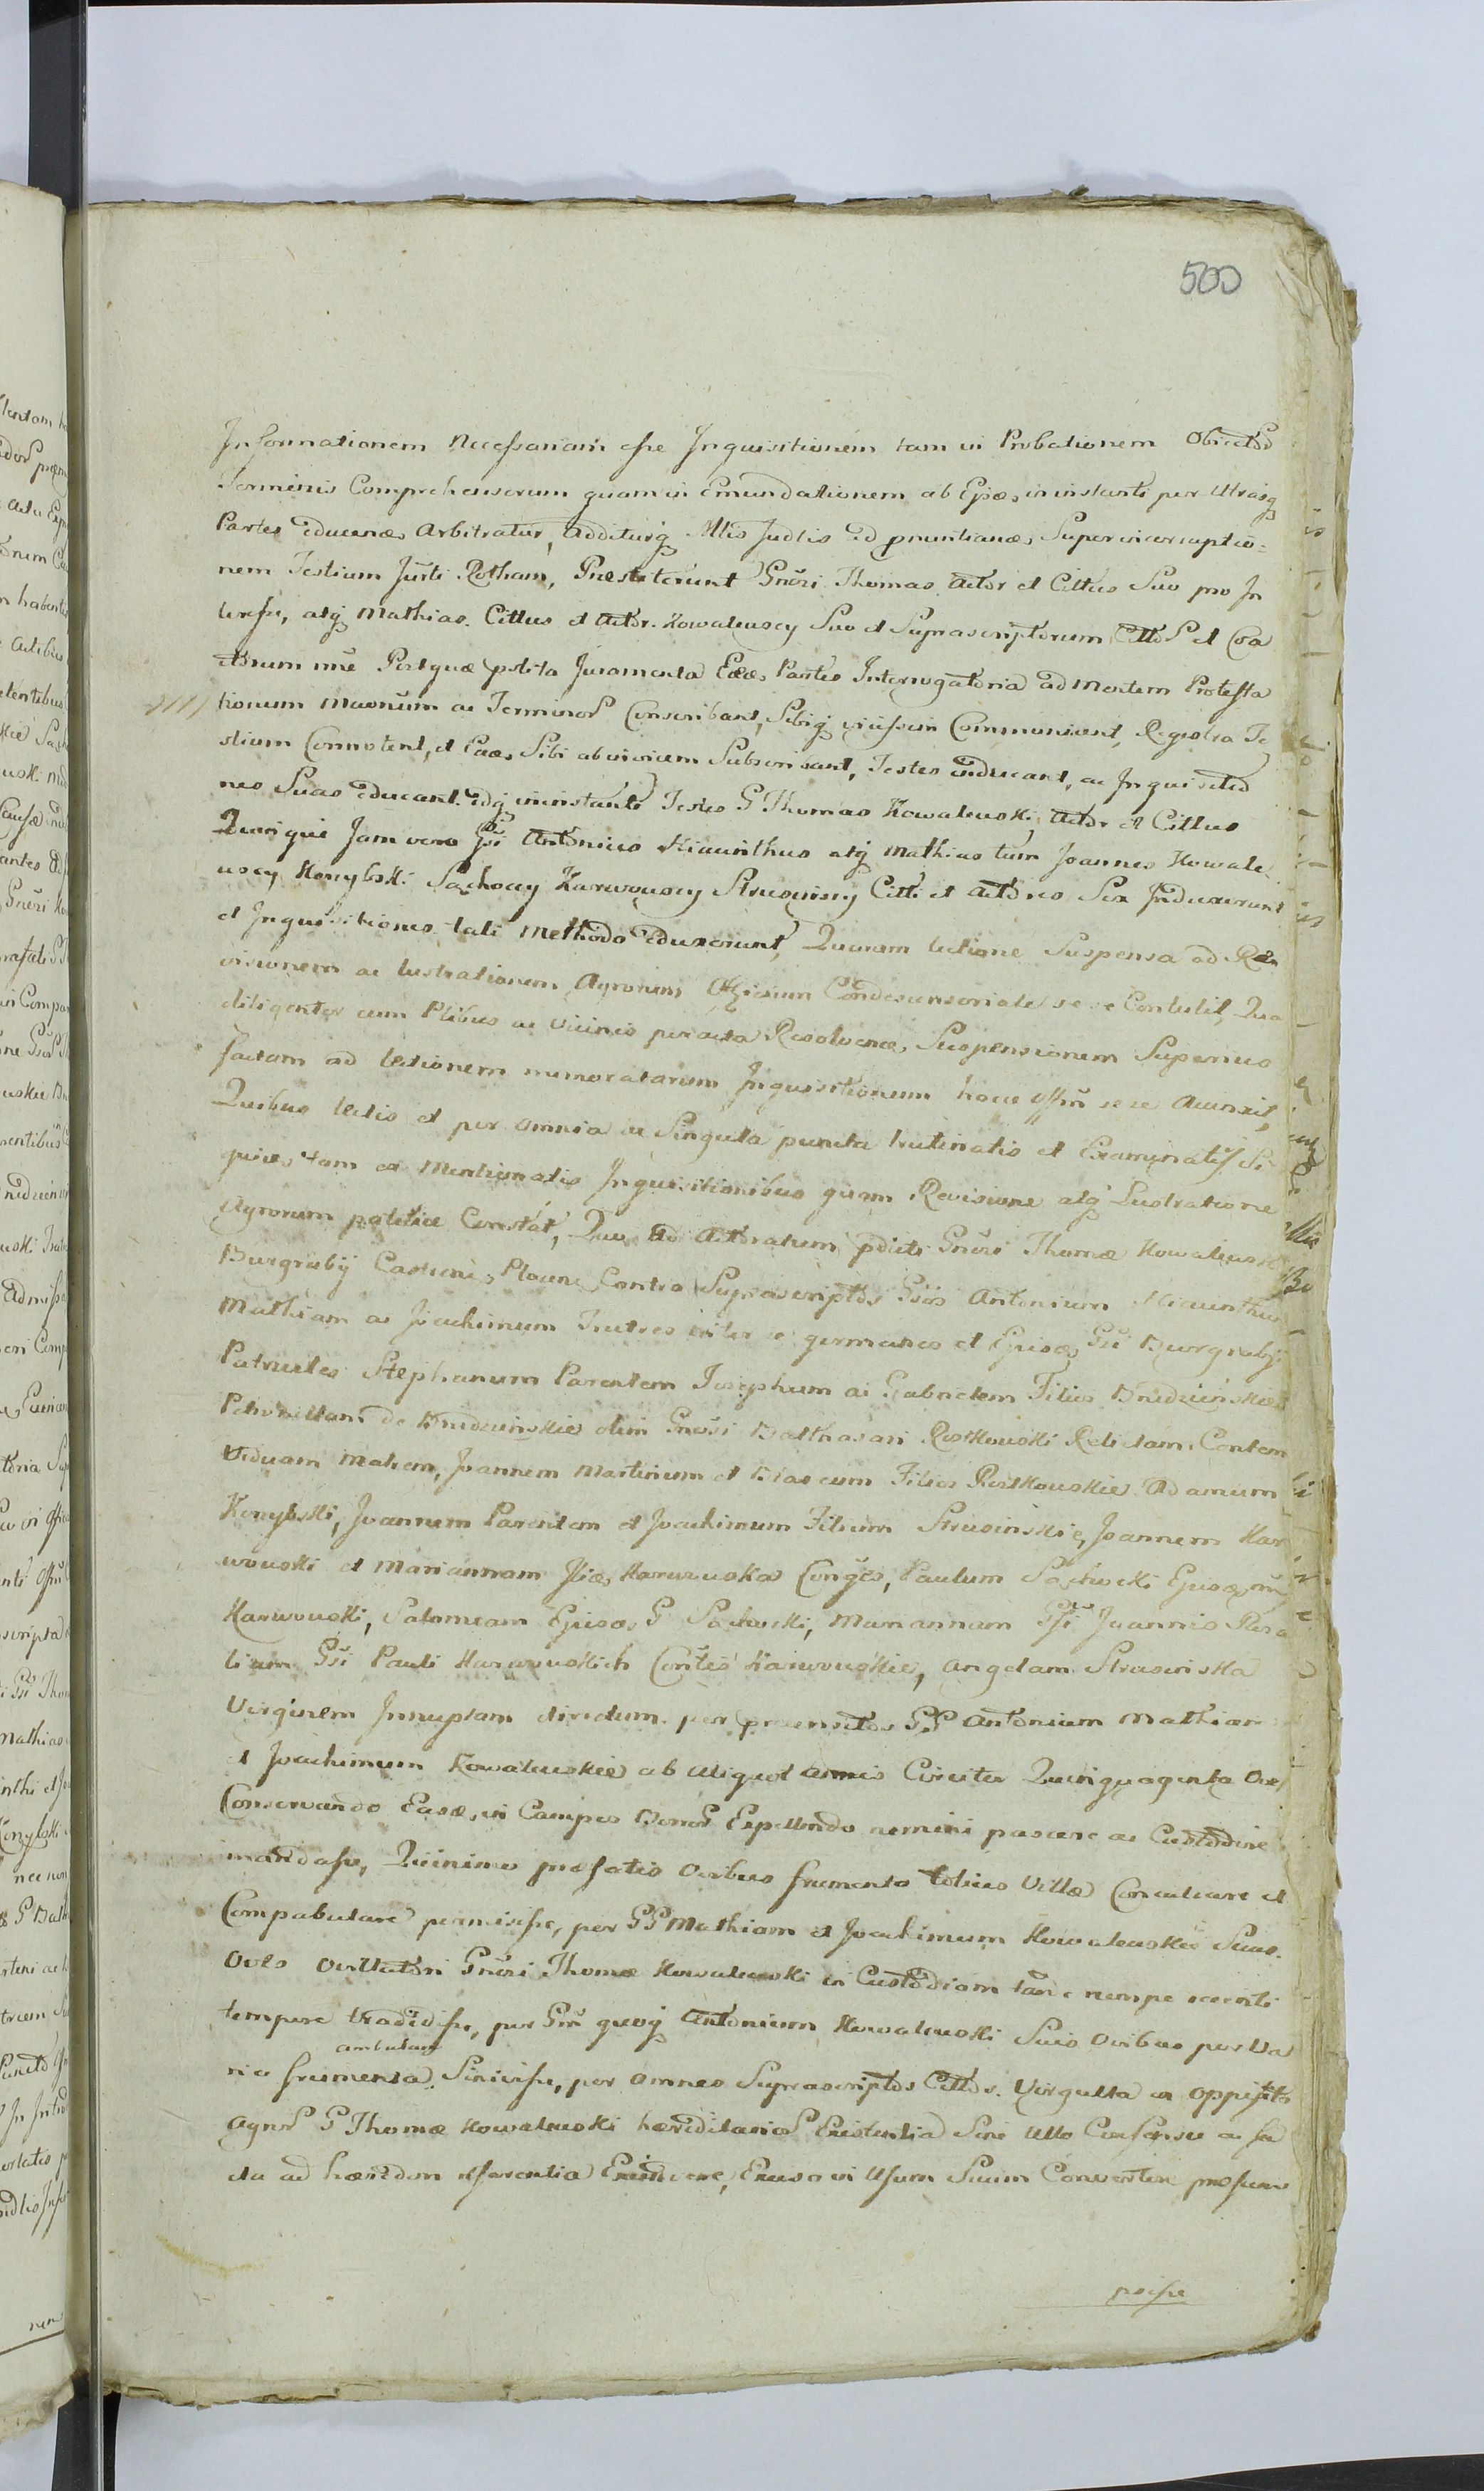 500
Informationem Necessariam esse Inquisitionem tam in Probationem Obiector
Terminis Comprehensorum quam in Emundationem ab Ejsae, in instanti per Utrasq
Partes educenae, Arbitratur, Additurq Mtis Judtis id pnuntianae, Super incorruptio=
nem Testium Jurti Rotham, Praestiterunt Gnosi Thomas Actor et Cittus Suo pro In
teresse, atq Mathias Cittus et Actor Kowalewscy Suo et Suprascriptorum Cittor et Coa
ctorum nne Postquae pstita Juramenta Eaeae, Partes Interrogatoria ad Mentem Protesta
tionum Maonum ac Terminor Conscribant, Sibiq vicissim Communicent, Regestra Te
stium Connotent, et Eaeae, Sibi abinvicem Subscribant, Testes inducant, ac Inquisitio
nes Suas educant. idq ininstanti Testes G Thomas Kowalewski Actor et Cittus
Quinque Jam vero Gsi Antonius Hiacinthus atq Mathias tum Joannes Kowale
wscy Konybski Sachocy Karwowscy Strusinscy Citti et Actores Sex Induxerunt
et Inquisitiones tali Methodo eduxerunt, Quarum lectione Suspensa ad Re
visionem ac lustrationem Agrorum Officium Condescensoriale sese Contulit, Qua
diligenter cum Ptibus ac Vicinis peracta Resolvenae, Suspensionem Superius
factam ad lectionem memoratarum Inquisitionum hocce Offm sese Accinxit,
Quibus lectis et per omnia ac Singula puncta trutinatis et Examinatis Si
quidem tam ex Mentionatis Inquisitionibus quam Revisione atq Lustratione
Agrorum patetice Constat, Quo ad Actoratum pdicti Gnosi Thomae Kowalewski
Burgrabij Castrenis, Plocen, Contra Suprascriptos Gsos Antonium Hiacinthum
Mathiam ac Joachimum Fratres inter se germanos et Ejusae, Gsi Burgrabij
Patrueles Stephanum Parentem Josephum ac Gabrielem Filios Brudzinskie
Petronellam de Brudzinskie olim Gnosi Balthasari Rostkowski Relictam Contem
Viduam Matrem, Joannem Martinum et Blasium Filios Rostkowskie Adamum
Konybski, Joannem Parentem et Joachimum Filium Strusinskie, Joannem Kar
wowski et Mariannam Jliae, Karwowska Conges, Paulum Sachocki Ejusae,
Karwowski, Salomeam Ejusae, G Sachocki, Mariannam Gsi Joannis
Gsi Pauli Karwowskich Contes Karwowskie, Angelam Strusinska
Virginem Innuptam dividum per praensitos GG Antonium Mathiam
et Joachimum Kowalewskie ab aliquot annis Circiter Quinquaginta Oves
Conservando Easae, in Campos Bonor Expellendo nemini pascere ac Custodire
mandasse, Quinimo praefatis Ovibus frumenta totius Villae Conculcare et
Compabulare permisisse, per GG Mathiam et Joachimum Kowalewskie Suas
Oves Ovillatori Gnosi Thomae Kowalewski in Custodiam tandc nempe recenti
tempore tradidisse, per Gm quoq Antonium Kowalewski Suis Ovibus per Va
ria frumenta ambulare Sinivisse, per omnes Suprascriptos Cittos. Virgulta in oppisito
Agror G Thomae Kowalewski haereditarior Existentia Sine Ullo Consensu a fa
cta ad haeredem referentia Exindere, Eaeae in Usum Suum Convertere praesum
psisse